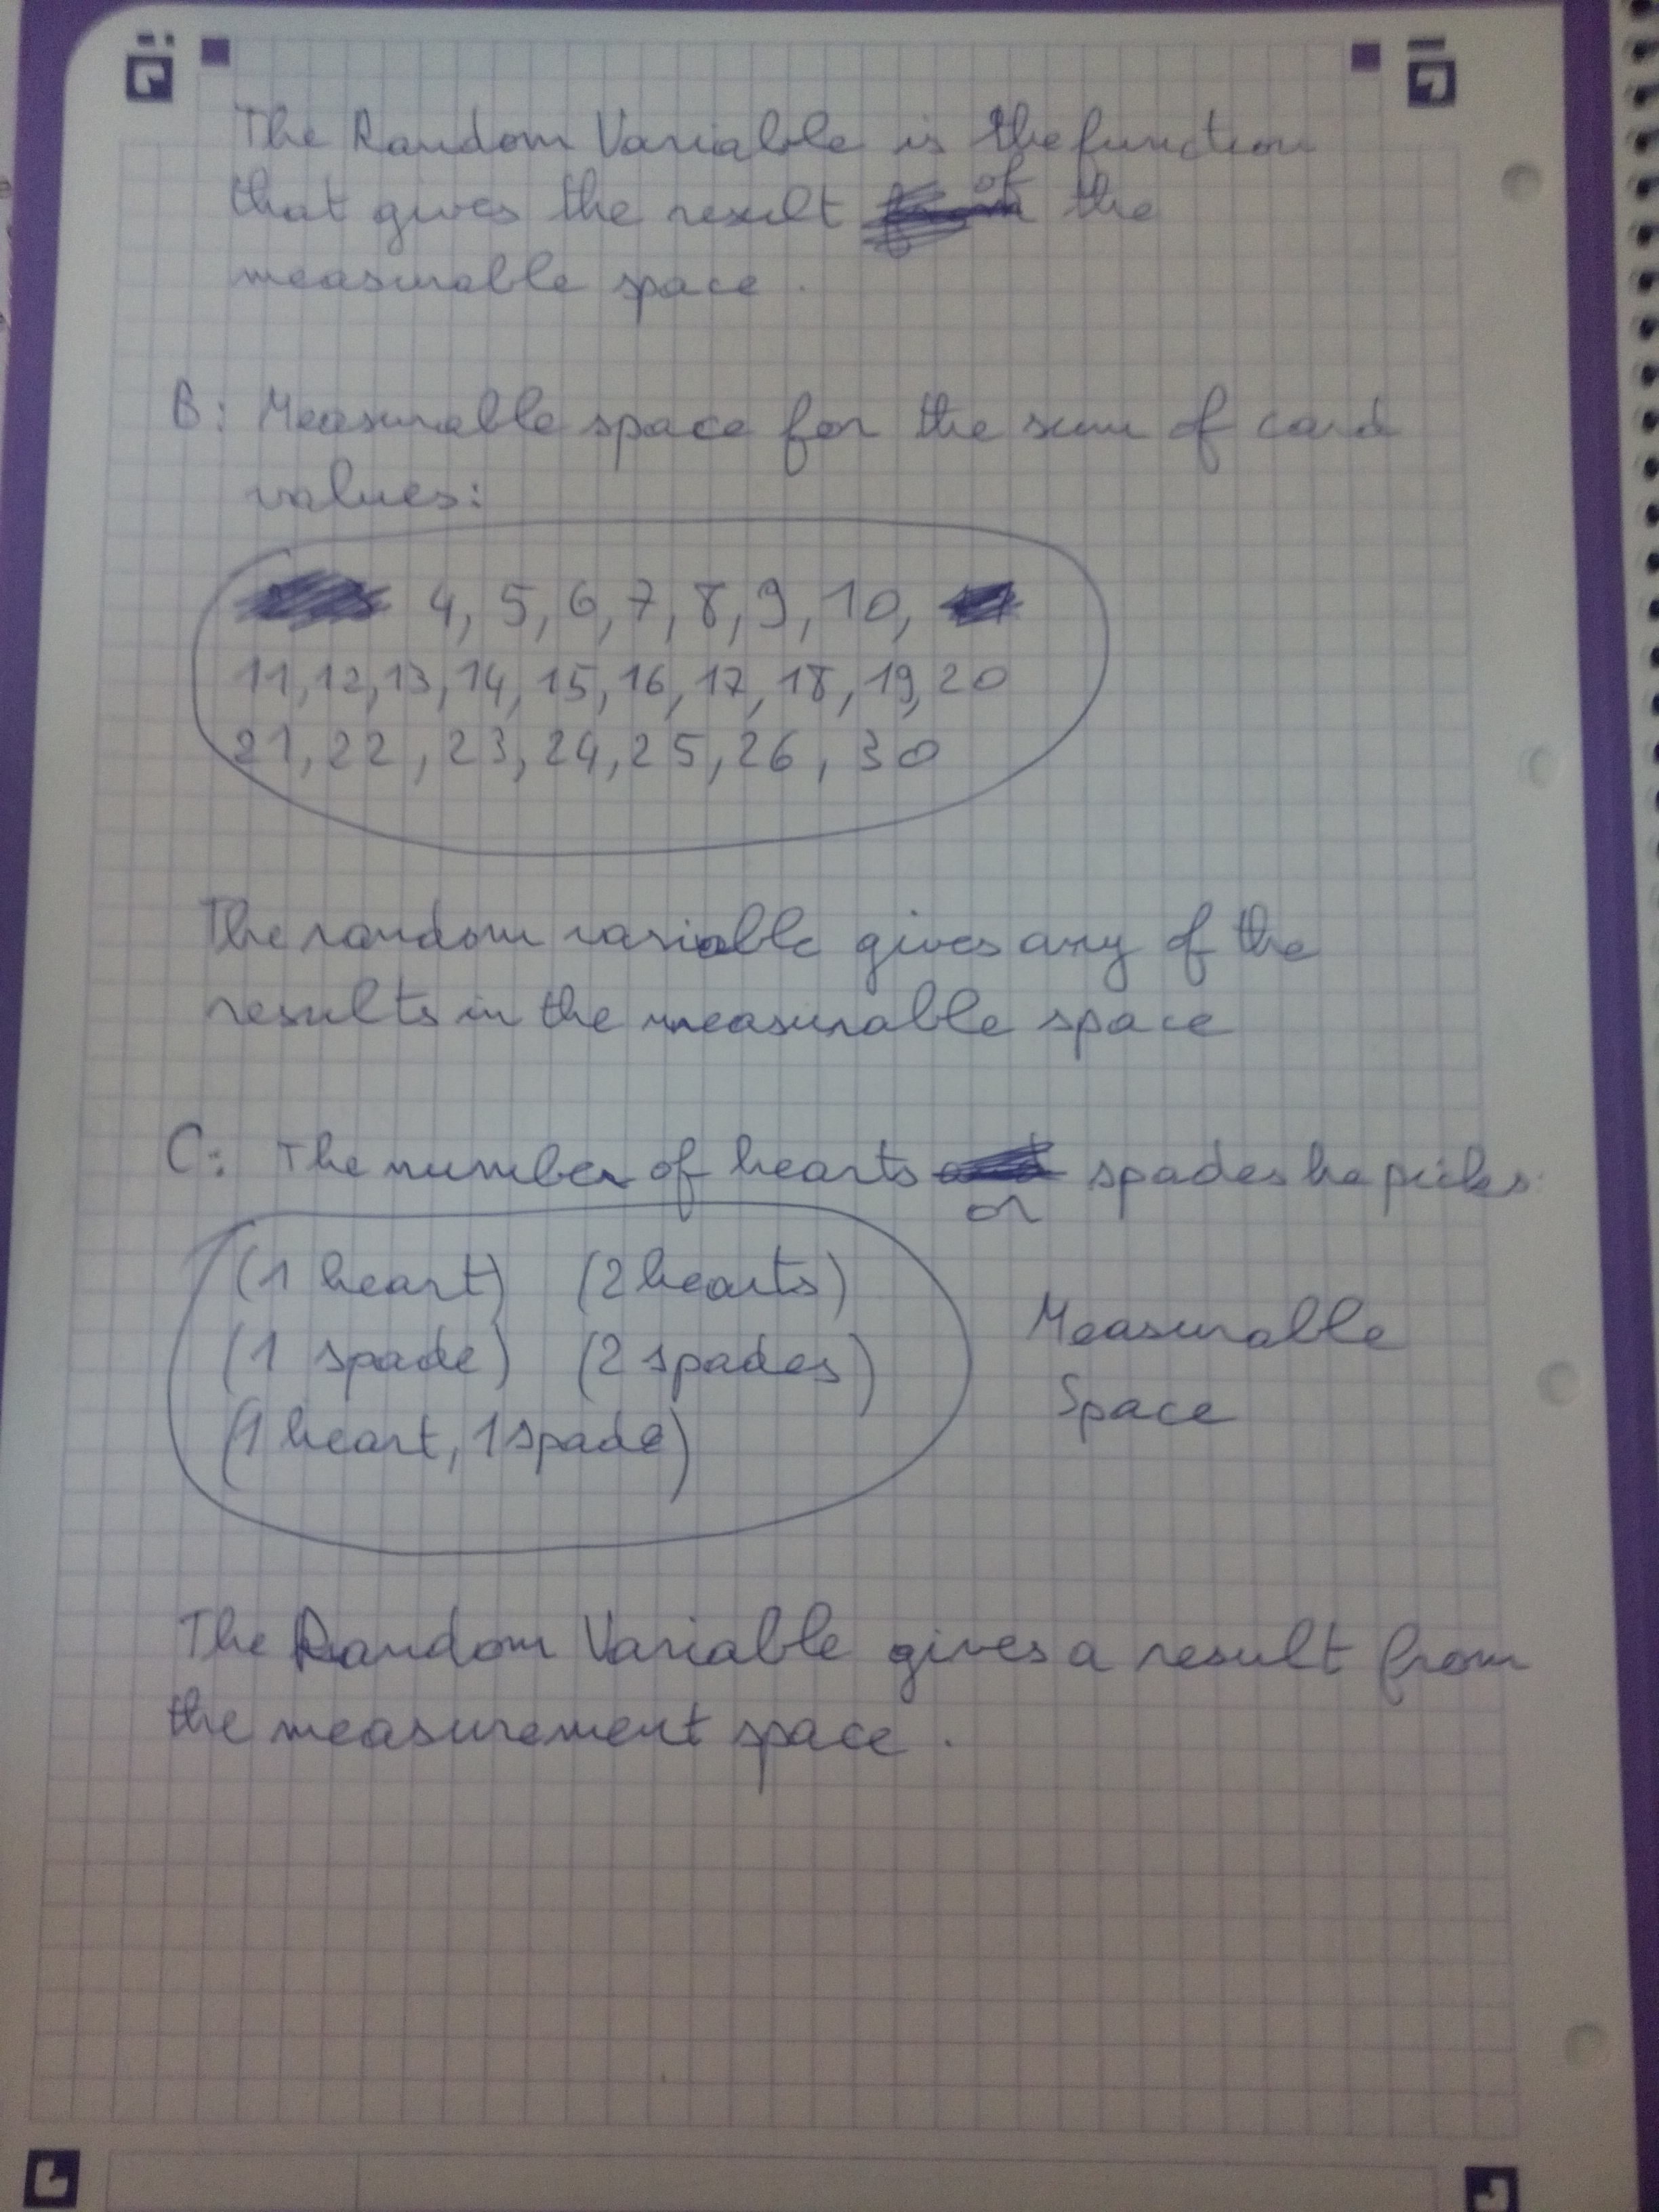 The Random Variable is the function
that gives the result of the
measurable space.
B: Measurable space for the sum of card
values:
4, 5, 6, 7, 8, 9, 10,
11, 12, 13, 14, 15, 16, 17, 18, 19, 20
21, 22, 23, 24, 25, 26, 30
The random variable gives any of the
results in the measurable space
C: The number of hearts or spades he picks.
(1 heart) (2 hearts)
(1 spade) (2 spades)
(1 heart, 1 spade)
Measurable
Space
The Random Variable gives a result from
the measurement space.